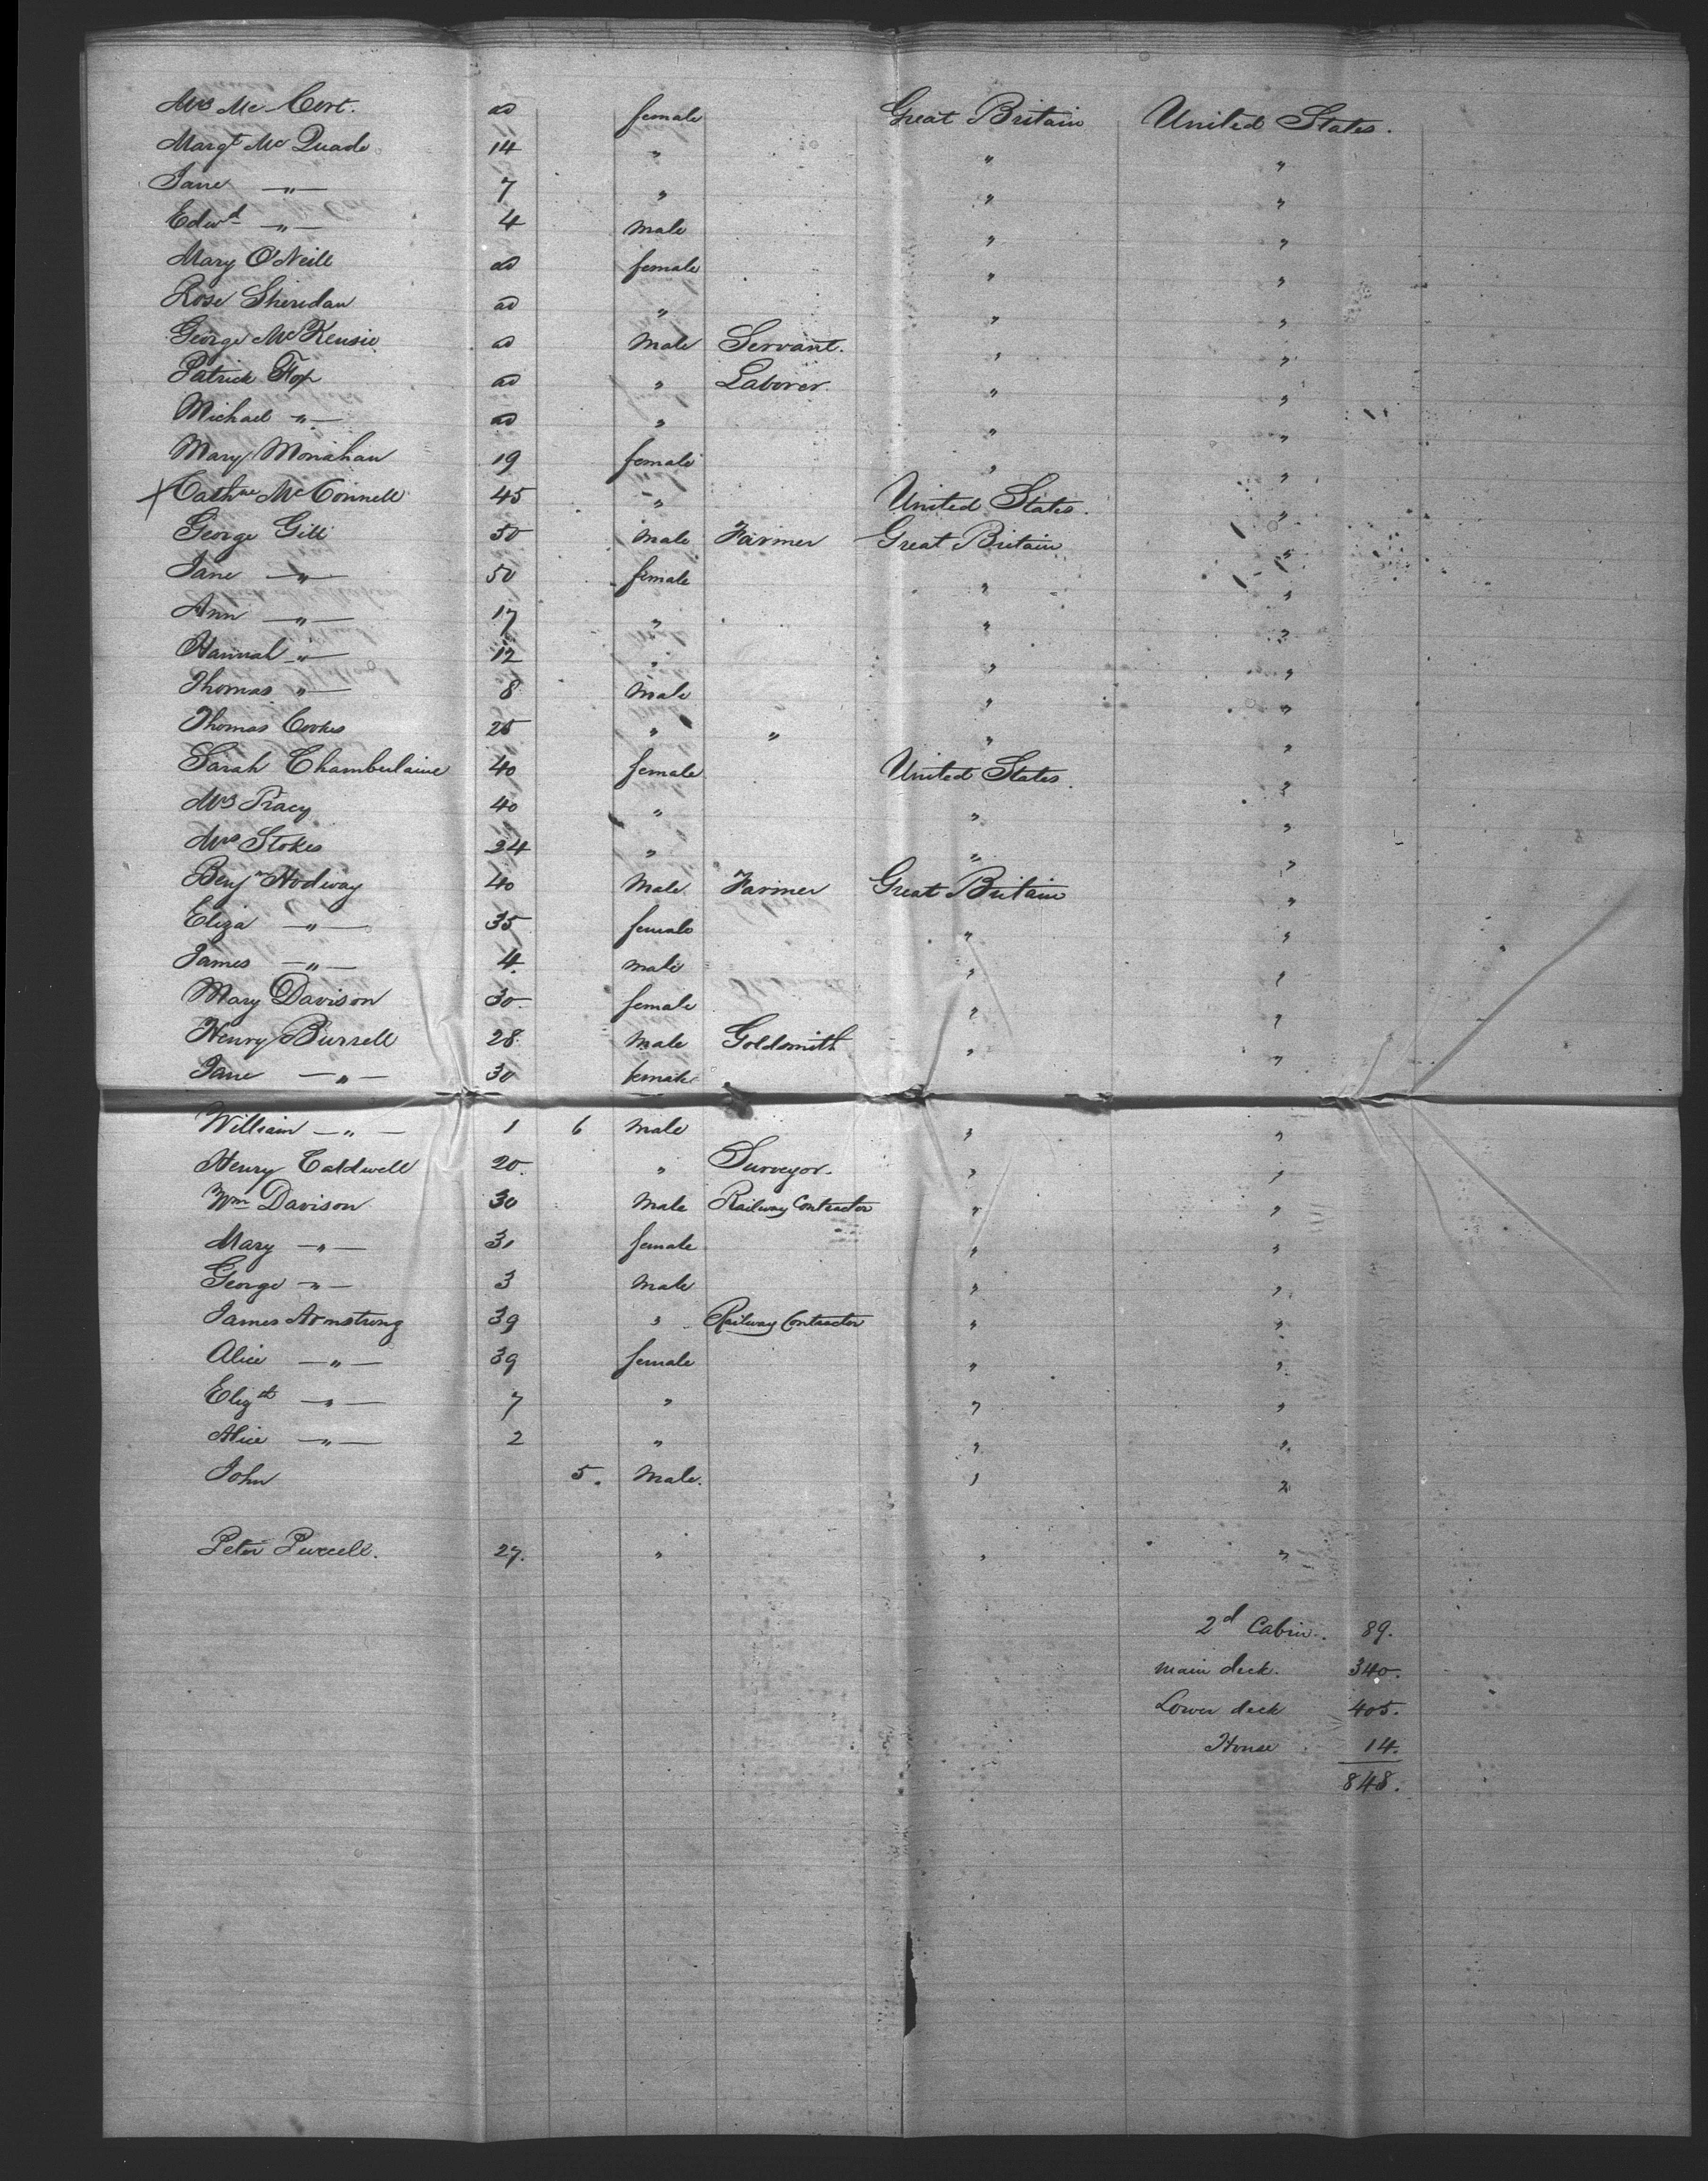 Mrs Mc Cort. ad female Great Britain United States.
Margt Mc Quade 14 " " "
Jane —"— 7 " " "
Edwd —"— 4 male " "
Mary O'Neill ad female " "
Rose Sheridan ad " " "
George McKensie ad Male Servant. " "
Patrick Fox ad " Laborer " "
Michael —"— ad " " "
Mary Monahan 19 female " "
X Cathne McConnell 45 " United States. "
George Gill 50 Male Farmer Great Britain "
Jane —"— 50 female " "
Ann —"— 17 " " "
Hannah —"— 12 " " "
Thomas —"— 8 Male " "
Thomas Cookes 25 " " " "
Sarah Chamberlaine 40 female United States. "
Mrs Tracy 40 " " "
Mrs Stokes 24 " " "
Benjn Hodway 40 Male Farmer Great Britain "
Eliza —"— 35 female " "
James —"— 4. male " "
Mary Davison 30. female " "
Henry Burrell 28. Male Goldsmith " "
Jane —"— 30 female
William —"— 1 6 Male " "
Henry Caldwell 20. " Surveyor. " "
Wm Davison 30 Male Railway Contractor " "
Mary —"— 31 female " "
George —"— 3 Male " "
James Armstrong 39 " Railway Contractor " "
Alice —"— 39 female " "
Elizth —"— 7 " " "
Alice —"— 2 " " "
John 5. Male. " "
Peter Purcell. 27. " " "
2d Cabin. 89.
Main deck. 340.
Lower deck 405.
House 14.
848.